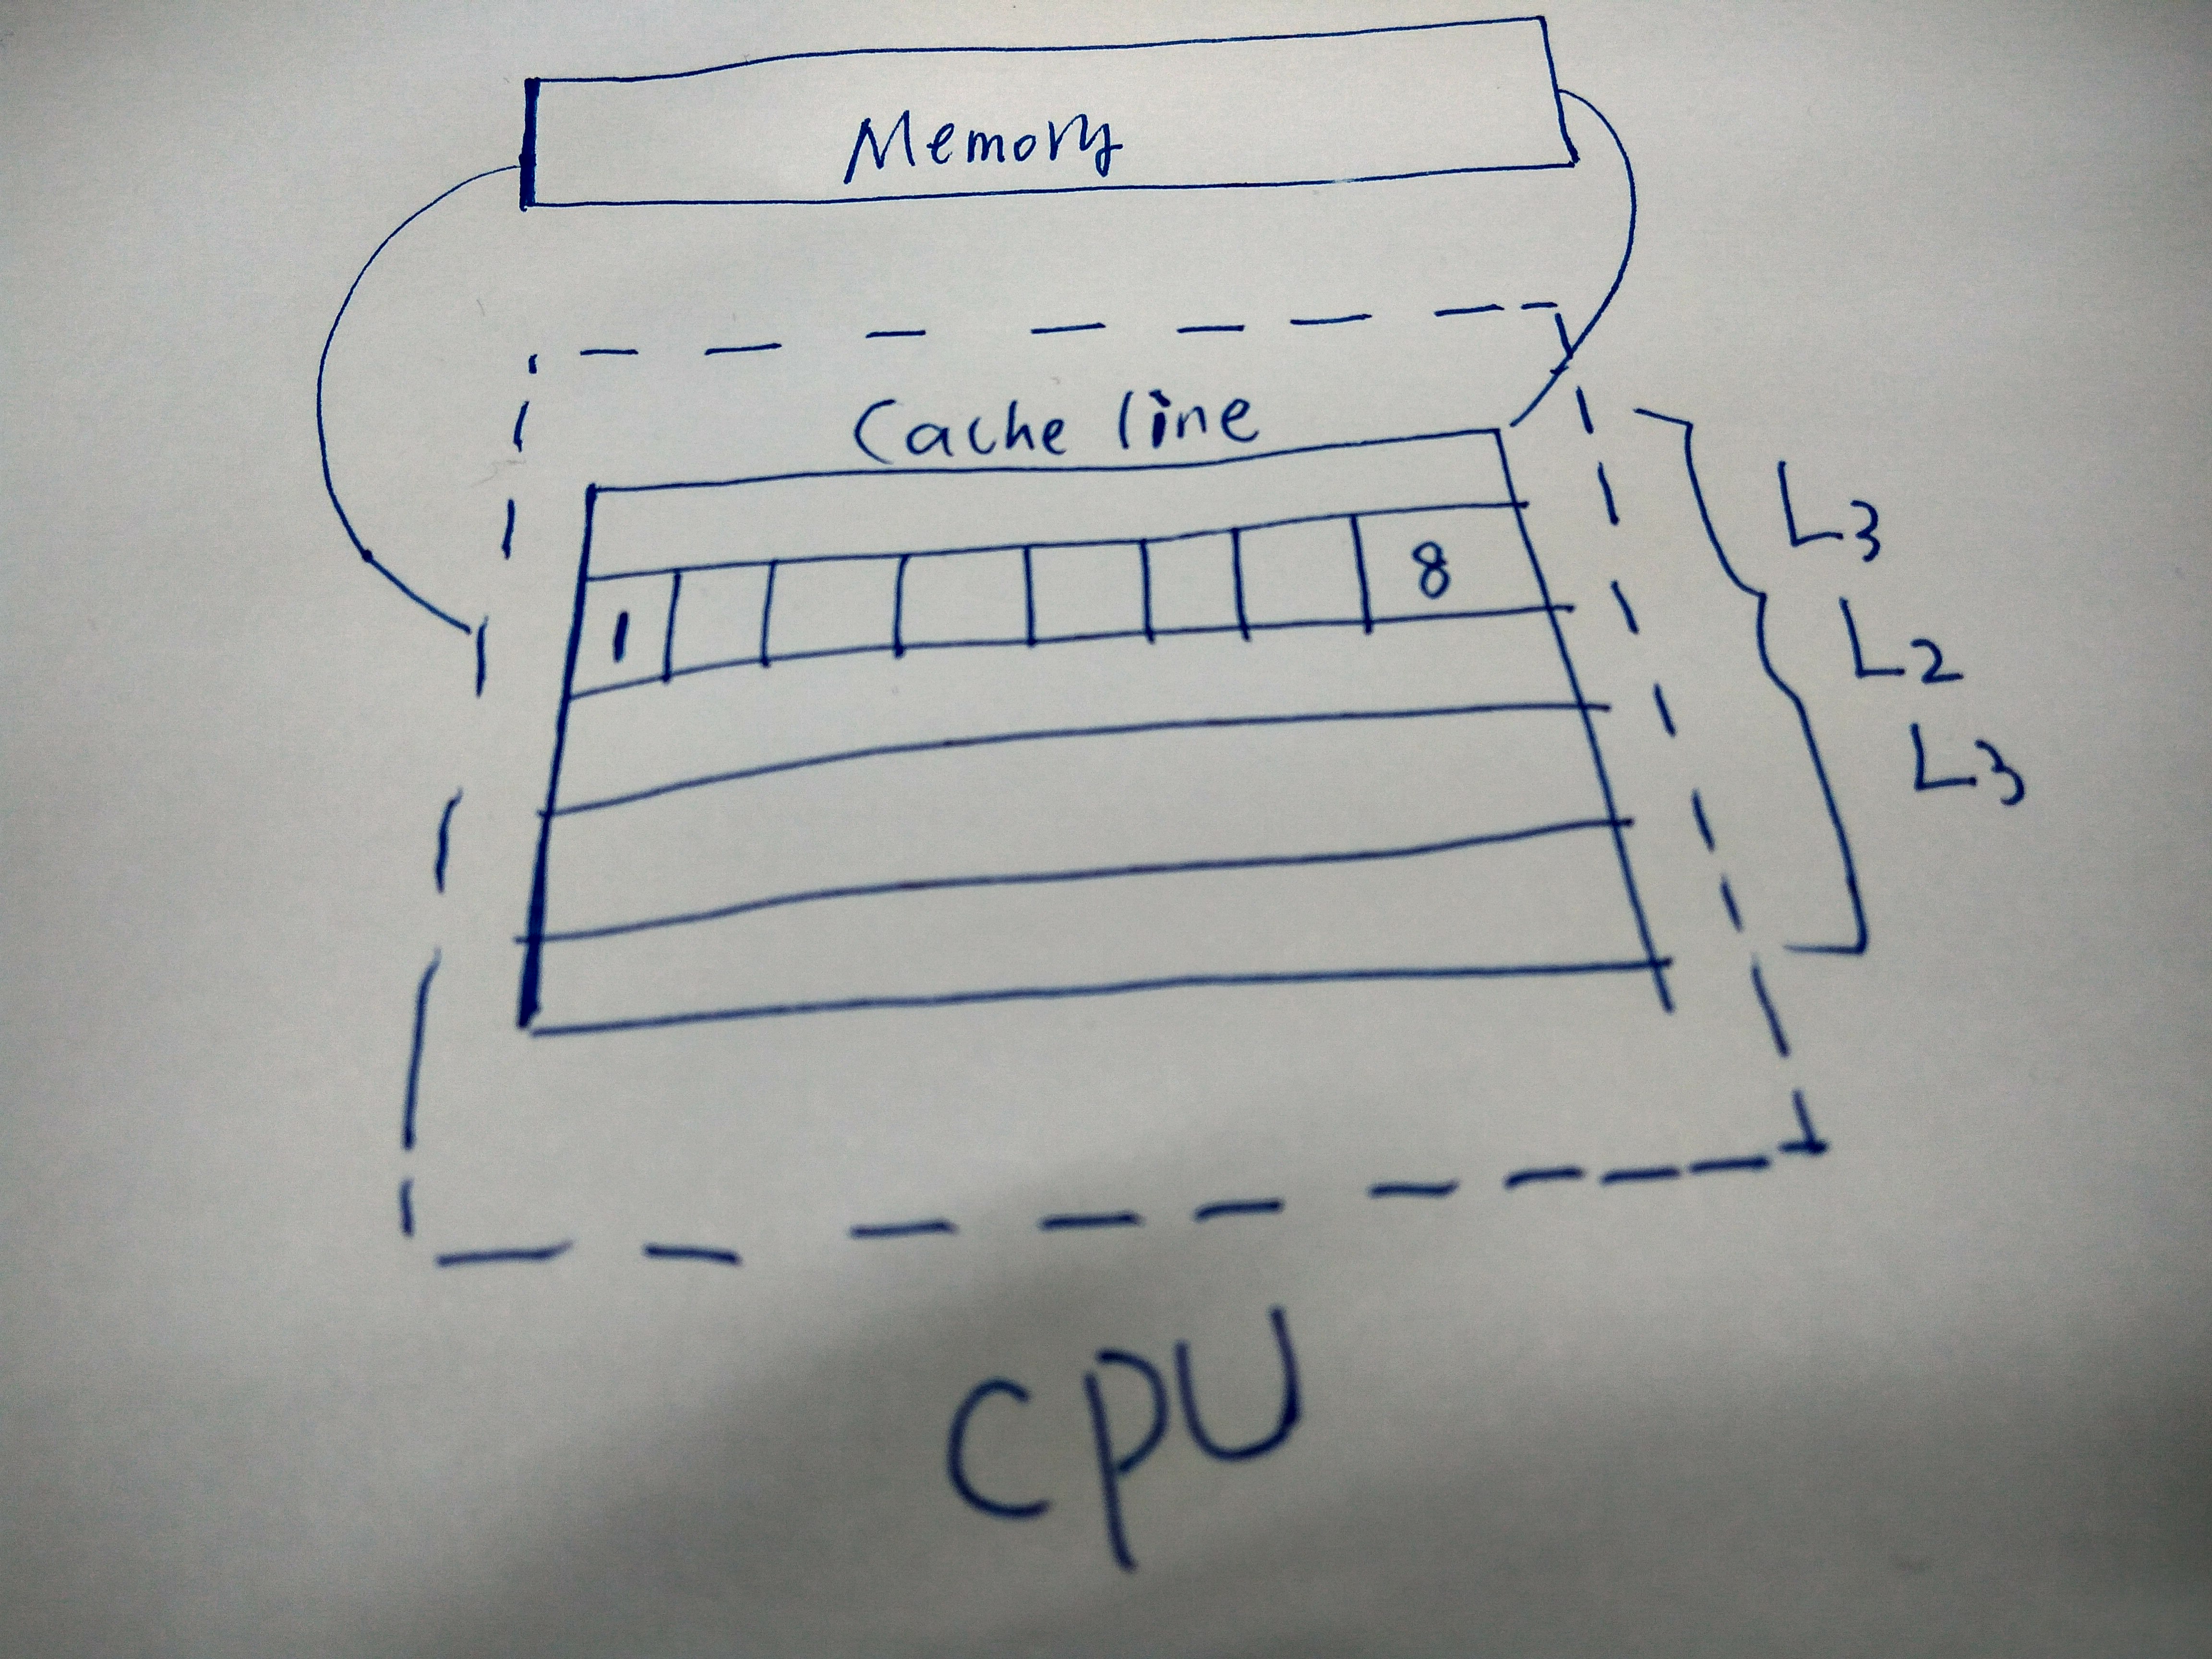 Memory
Cache line
1 8
L3
L2
L3
CPU